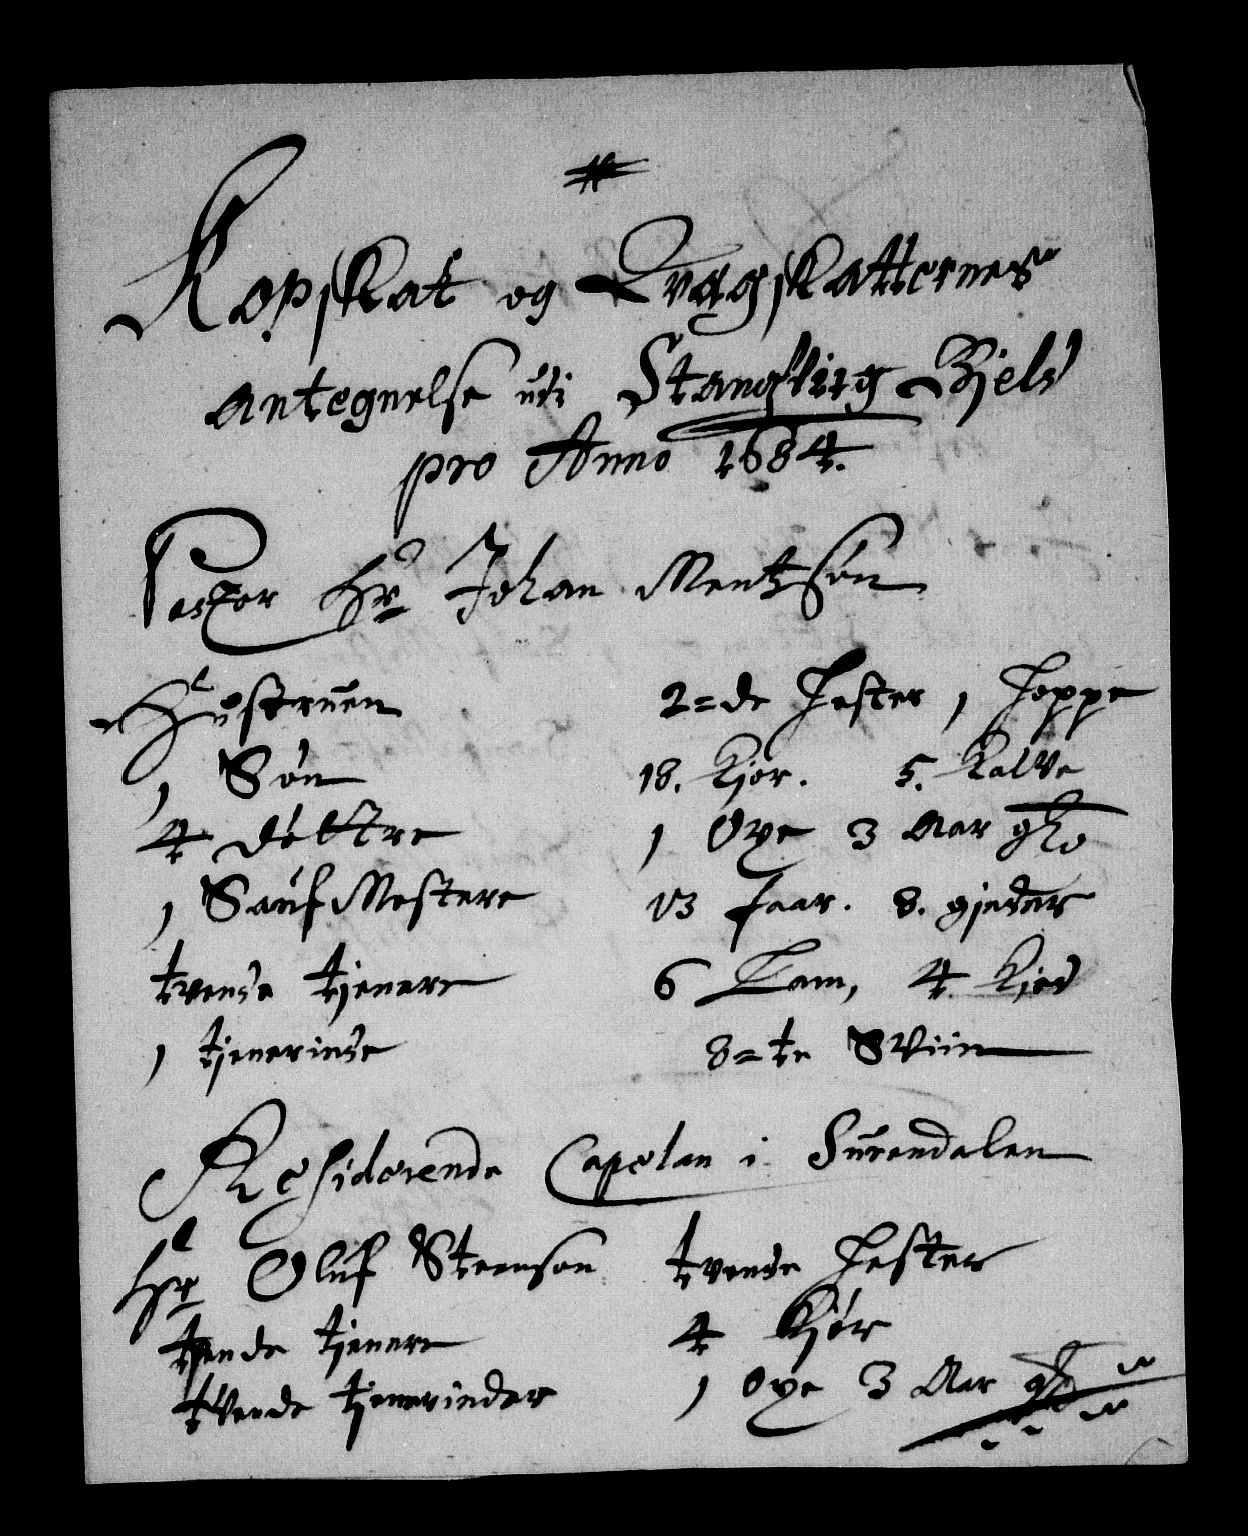 Kopskat og Qvægskatternes
antegnelse udi Stangviig Gjeld
pro Anno 1684.
Pastor Hr Johan Mentzsøn
Hustruen
1 Søn
4 døttre
1 Sauf Mestere
tvende tjenere
1 tjenerinde
2=de Hester 1 Hoppe
18. Kjør. 5. Kalve
1 Oxe 3 Aar gl:
13 faar. 8. gjeder
6 Lam, 4. Kied
8=te Sviin
Residerende Capelan i Surendalen
Hr Oluf Steenson
tvende tjenere
tvende tjenerinder
tvende Hester
4 Kjør
1 Oxe 3 Aar gl: